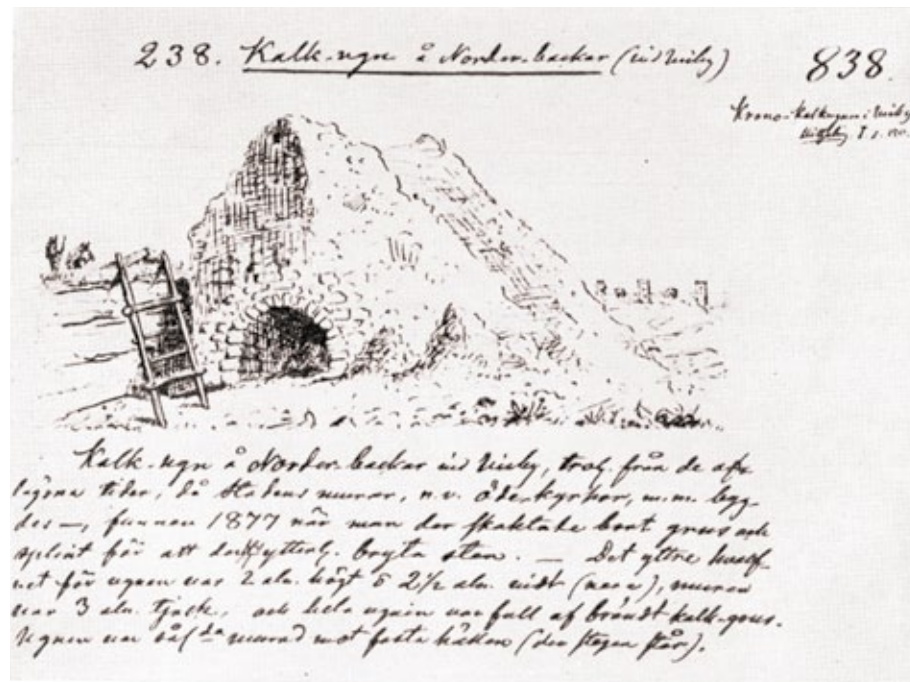 238. Kalk-ugn å Norder-backar (vid Visby)
838.
Krono-Kalkugnen i Visby
Kalk-ugn å Norder-backar vid Visby, trol. från de afs-
lägsna tider, då Stadens murar, n.v. öde-kyrkor, m.m. byg-
des —, funnen 1877 när man der skaktade bort grus och
splint för att ytterl. bryta sten. — Det yttre hvalf-
vet för ugnen var 2 aln. högt o 2½ aln. vidt (nere), muren
var 3 aln. tjock, och hela ugnen var full af brändt kalk-grus.
Ugnen var murad mot fasta hällen (der stegen står).